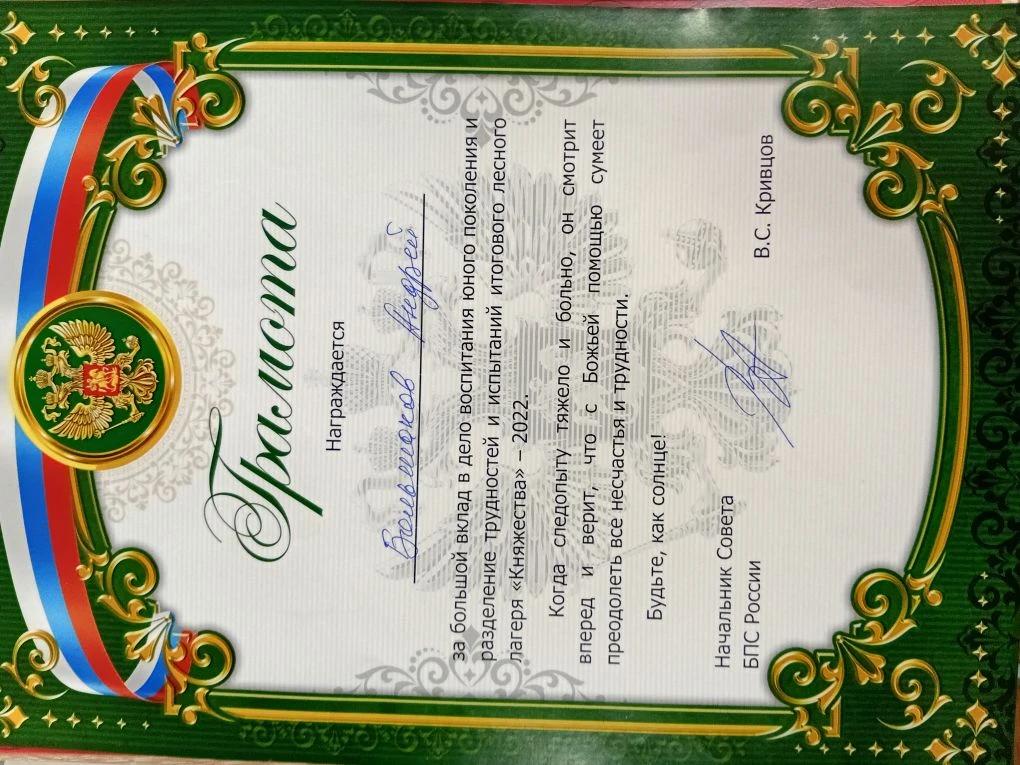 Грамота
Награждается
Большаков Андрей
за большой вклад в дело воспитания юного поколения и
разделение трудностей и испытаний итогового лесного
лагеря «Княжества» – 2022.
Когда следопыту тяжело и больно, он смотрит
вперед и верит, что с Божьей помощью сумеет
преодолеть все несчастья и трудности.
Будьте, как солнце!
Начальник Совета
БПС России В.С. Кривцов